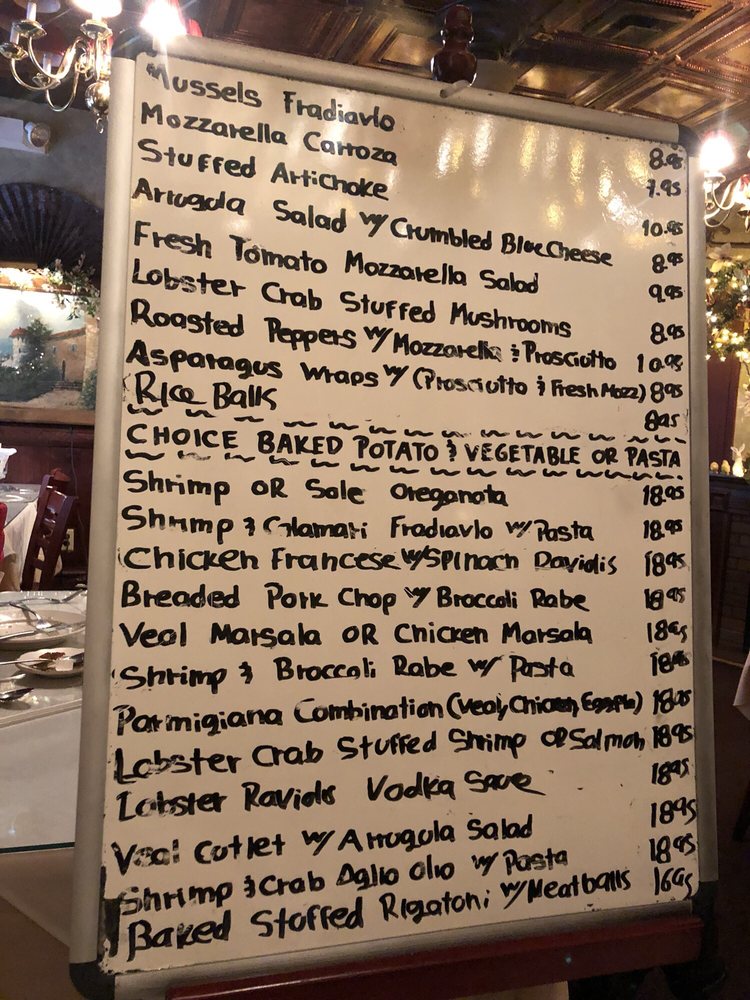 Mussels Fradiavlo 8.95
Mozzarella Carroza 7.95
Stuffed Artichoke 10.95
Arrugola Salad w/ Crumbled Blue Cheese 8.95
Fresh Tomato Mozzarella Salad 9.95
Lobster Crab Stuffed Mushrooms 8.95
Roasted Peppers w/ Mozzarella & Prosciutto 10.95
Asparagus Wraps w/ (Prosciutto & Fresh Mozz) 8.95
Rice Balls 8.95
CHOICE BAKED POTATO & VEGETABLE OR PASTA
Shrimp OR Sole Oreganata 18.95
Shrimp & Calamari Fradiavlo w/ Pasta 18.95
Chicken Francese w/ Spinach Davidis 18.95
Breaded Pork Chop w/ Broccoli Rabe 18.95
Veal Marsala OR Chicken Marsala 18.95
Shrimp & Broccoli Rabe w/ Pasta 18.95
Parmigiana Combination (Veal, Chicken, Eggpla) 18.95
Lobster Crab Stuffed Shrimp OR Salmon 18.95
Lobster Raviolis Vodka Sauce 18.95
Veal Cutlet w/ Arrugola Salad 18.95
Shrimp & Crab Aglio Olio w/ Pasta 18.95
Baked Stoffed Rigatoni w/ Meatballs 16.95